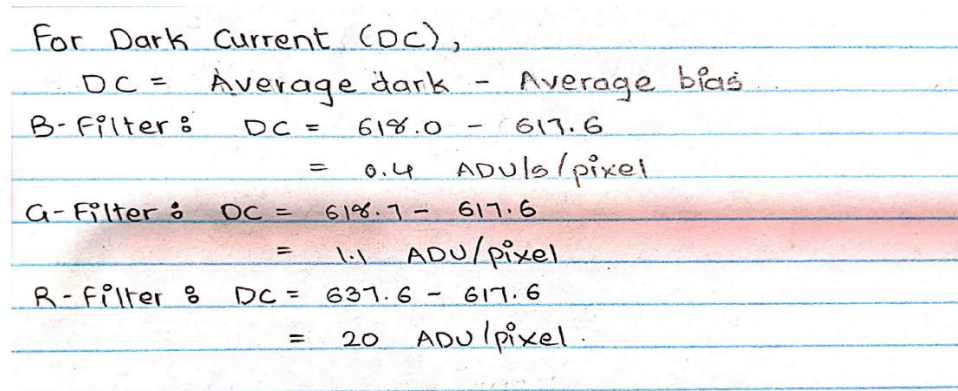 For Dark Current (DC),
DC = Average dark - Average bias
B-Filter: DC = 618.0 - 617.6
= 0.4 ADU/s/pixel
G-Filter: DC = 618.7 - 617.6
= 1.1 ADU/pixel
R-Filter: DC = 637.6 - 617.6
= 20 ADU/pixel.